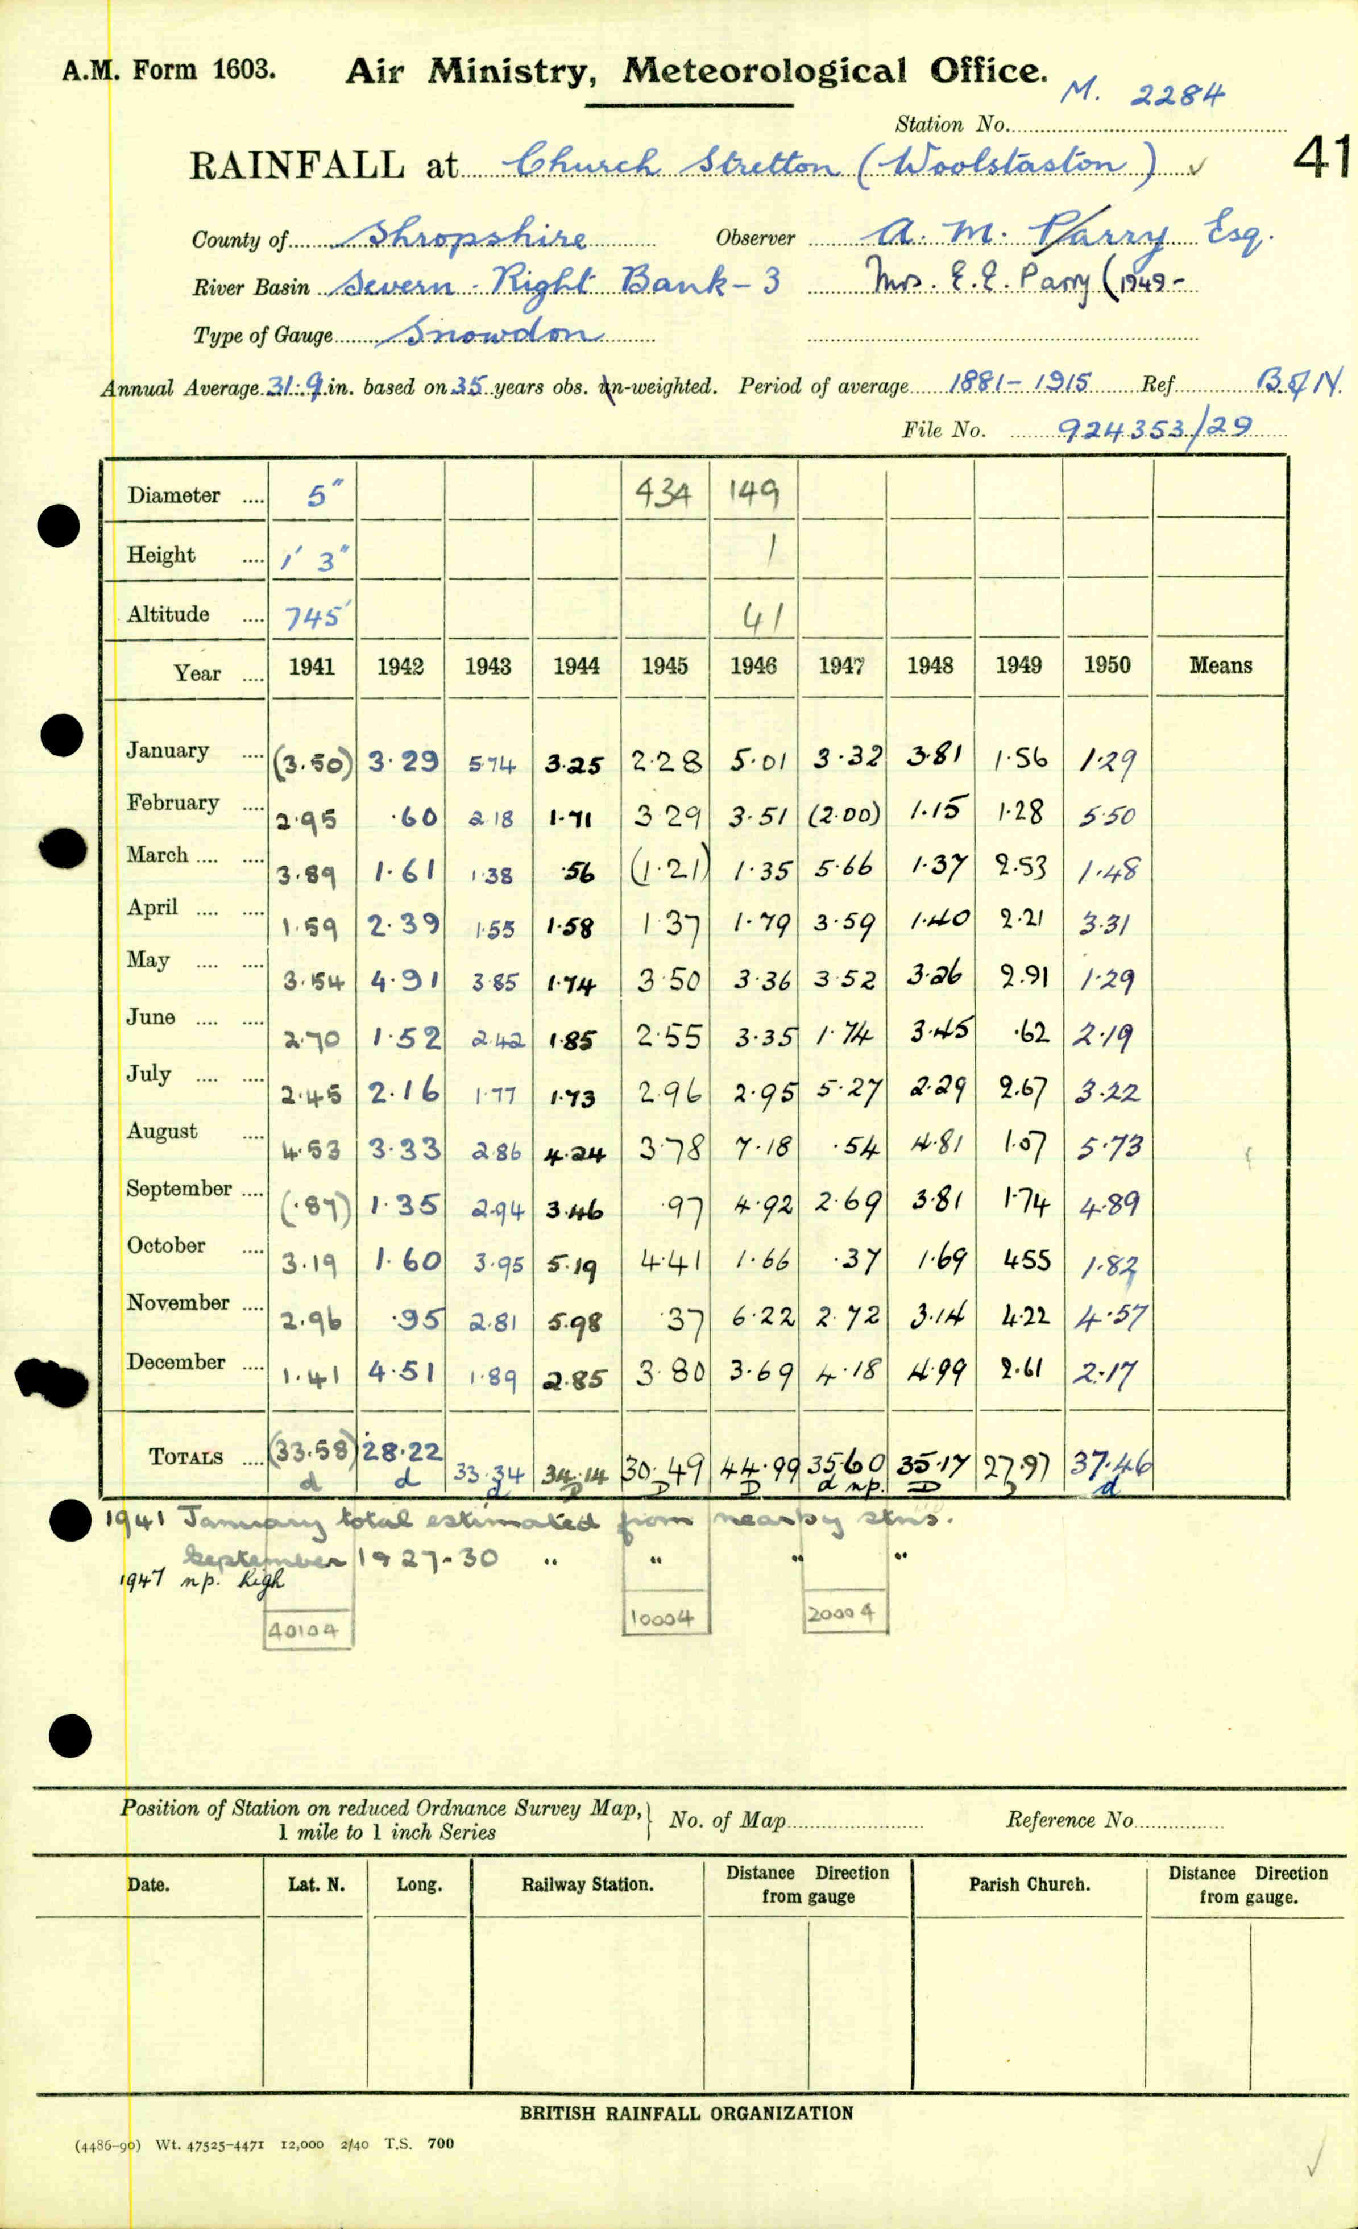 A.M. Form 1603. Air Ministry, Meteorological Office.
M. 2284
Station No.
RAINFALL at Church Stretton (Woolstaston) ✓ 41
County of Shropshire Observer A. M. Parry Esq.
River Basin Severn - Right Bank - 3 Mrs. E. E. Parry (1949-
Type of Gauge Snowdon
Annual Average 31.9 in. based on 35 years obs. un-weighted. Period of average 1881-1915 Ref. B of N.
File No. 924353/29
Diameter .... 5" 434 149
Height .... 1' 3" 1
Altitude .... 745' 41
Year .... 1941 1942 1943 1944 1945 1946 1947 1948 1949 1950 Means
January .... (3.50) 3.29 5.74 3.25 2.28 5.01 3.32 3.81 1.56 1.29
February .... 2.95 .60 2.18 1.71 3.29 3.51 (2.00) 1.15 1.28 5.50
March .... .... 3.89 1.61 1.38 .56 (1.21) 1.35 5.66 1.37 2.53 1.48
April .... .... 1.59 2.39 1.55 1.58 1.37 1.79 3.59 1.40 2.21 3.31
May .... .... 3.54 4.91 3.85 1.74 3.50 3.36 3.52 3.26 2.91 1.29
June .... .... 2.70 1.52 2.42 1.85 2.55 3.35 1.74 3.45 .62 2.19
July .... .... 2.45 2.16 1.77 1.73 2.96 2.95 5.27 2.29 2.67 3.22
August .... 4.53 3.33 2.86 4.24 3.78 7.18 .54 4.81 1.07 5.73
September .... (.87) 1.35 2.94 3.46 .97 4.92 2.69 3.81 1.74 4.89
October .... 3.19 1.60 3.95 5.19 4.41 1.66 .37 1.69 4.55 1.82
November .... 2.96 .95 2.81 5.98 .37 6.22 2.72 3.14 4.22 4.57
December .... 1.41 4.51 1.89 2.85 3.80 3.69 4.18 4.99 2.61 2.17
TOTALS .... (33.58) 28.22 33.34 34.14 30.49 44.99 35.60 35.17 27.97 37.46
d d d D D D d np. D D d
1941 January total estimated from nearby stns.
September 1927-30 " " " "
1947 np. High
40104 10004 20004
Position of Station on reduced Ordnance Survey Map, } No. of Map Reference No.
1 mile to 1 inch Series
Date. Lat. N. Long. Railway Station. Distance Direction from gauge Parish Church. Distance Direction from gauge.
BRITISH RAINFALL ORGANIZATION
(4486-90) Wt. 47525-4471 12,000 2/40 T.S. 700
✓